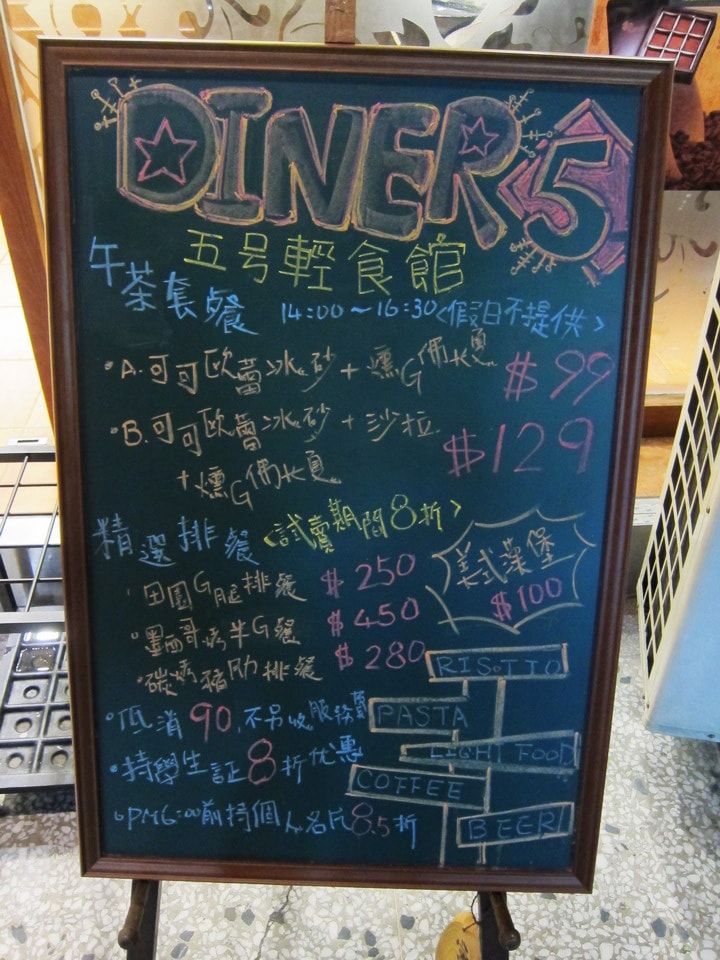 DINER 5
五号輕食館
午茶套餐 14:00~16:30<假日不提供>
•A.可可歐蕾冰砂+燻G佛卡夏 $99
•B.可可歐蕾冰砂+沙拉 $129
+燻G佛卡夏
精選排餐<試賣期間8折>
美式漢堡 $100
•田園G腿排餐 $250
•墨西哥烤半G餐 $450
•碳烤豬肋排餐 $280
•低消90,不另收服務費
•持學生証8折优惠
•PM6:00前持個人名片8.5折
RISOTTO
PASTA
LIGHT FOOD
COFFEE
BEER